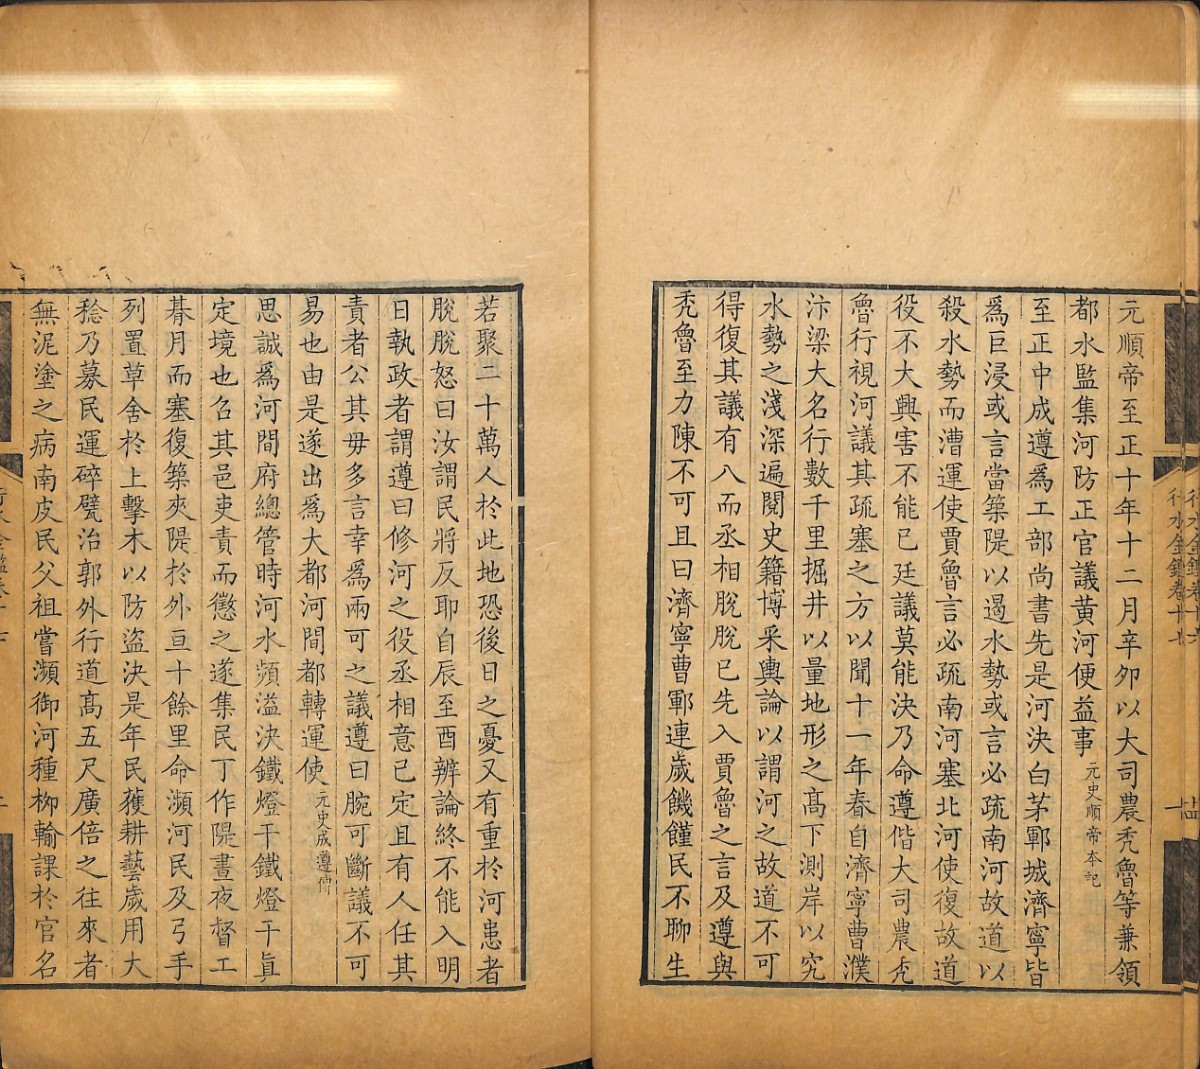 元順帝至正十年十二月辛卯以大司農禿魯等兼領
都水監集河防正官議黃河便益事元史順帝本記
至正中成遵爲工部尚書先是河決白茅鄆城濟寧皆
爲巨浸或言當築隄以遏水勢或言必疏南河故道以
殺水勢而漕運使賈魯言必疏南河塞北河使復故道
役不大興害不能已廷議莫能決乃命遵偕大司農禿
魯行視河議其疏塞之方以聞十一年春自濟寧曹濮
汴梁大名行數千里掘井以量地形之高下測岸以究
水勢之淺深遍閱史籍博采輿論以謂河之故道不可
得復其議有八而丞相脫脫已先入賈魯之言及遵與
禿魯至力陳不可且曰濟寧曹鄆連歲饑饉民不聊生
若聚二十萬人於此地恐後日之憂又有重於河患者
脫脫怒曰汝謂民將反耶自辰至酉辨論終不能入明
日執政者謂遵曰修河之役丞相意已定且有人任其
責者公其毋多言幸爲兩可之議遵曰腕可斷議不可
易也由是遂出爲大都河間都轉運使元史成遵傳
思誠爲河間府總管時河水頻溢決鐵燈干鐵燈干眞
定境也召其邑吏責而懲之遂集民丁作隄晝夜督工
朞月而塞復築夾隄於外亘十餘里命瀕河民及弓手
列置草舍於上擊木以防盜決是年民獲耕藝歲用大
稔乃募民運碎甓治郭外行道高五尺廣倍之往來者
無泥塗之病南皮民父祖嘗瀕御河種柳輸課於官名
行水金鑑卷十七
一